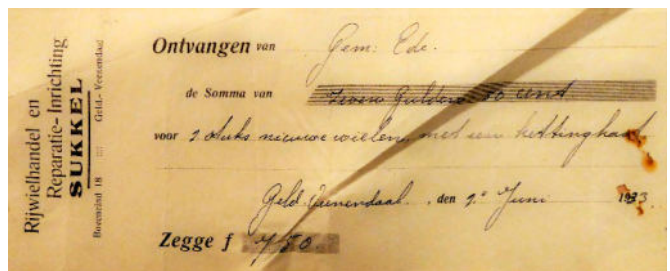 Rijwielhandel en
Reparatie-Inrichting
SUKKEL
Boveneind 18 Geld.-Veenendaal
Ontvangen van Gem: Ede.
de Somma van Zeven Gulden 50 cent
voor 2 stuks nieuwe wielen, met een kettingkast
Geld Veenendaal, den 2e Juni 1933
Zegge f 7.50